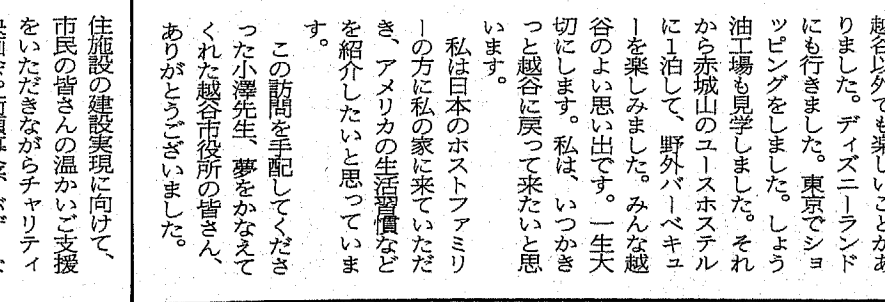 越谷以外でも楽しいことがあ
りました。ディズニーランド
にも行きました。東京でショ
ッピングをしました。しょう
油工場も見学しました。それ
から赤城山のユースホステル
に1泊して、野外バーベキュ
ーを楽しみました。みんな越
谷のよい思い出です。一生大
切にします。私は、いつかき
っと越谷に戻って来たいと思
います。
私は日本のホストファミリ
ーの方に私の家に来ていただ
き、アメリカの生活習慣など
を紹介したいと思っていま
す。
この訪問を手配してくださ
った小澤先生、夢をかなえて
くれた越谷市役所の皆さん、
ありがとうございました。
住施設の建設実現に向けて、
市民の皆さんの温かいご支援
をいただきながらチャリティ